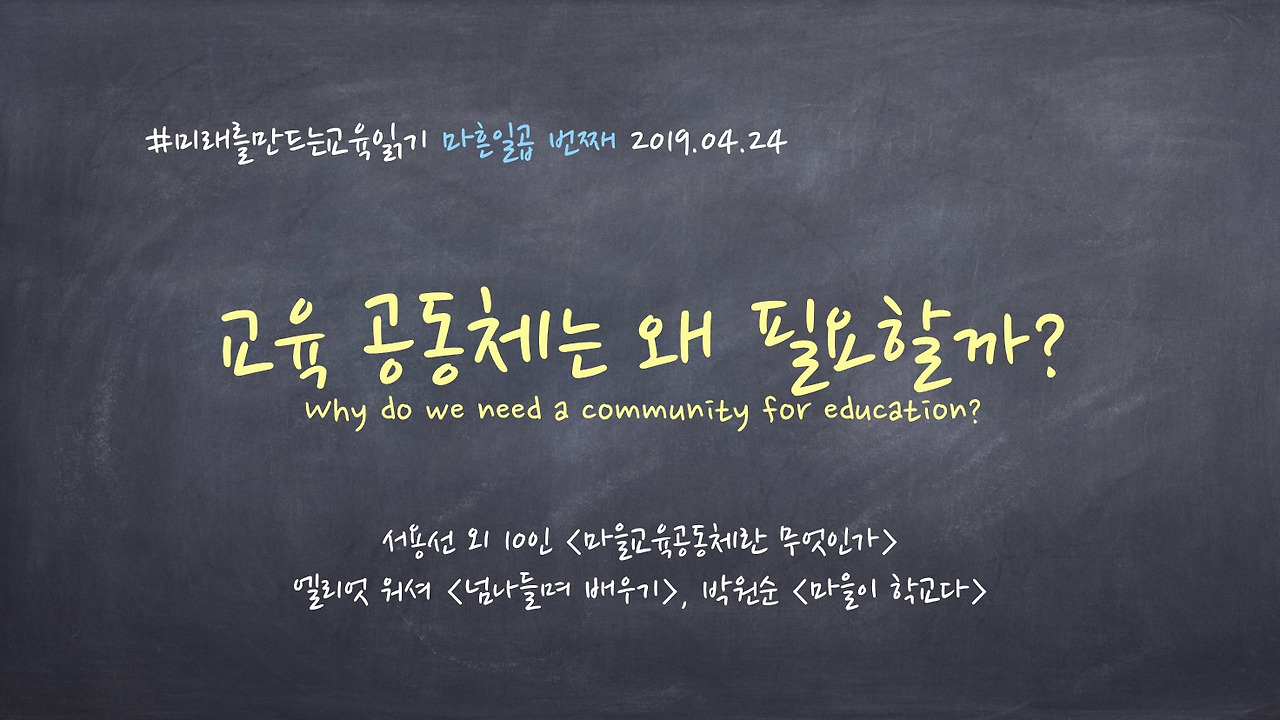 #미래를만드는교육읽기 마흔일곱 번째 2019.04.24
교육 공동체는 왜 필요할까?
Why do we need a community for education?
서용선 외 10인 <마을교육공동체란 무엇인가>
엘리엇 워셔 <넘나들며 배우기>, 박원순 <마을이 학교다>